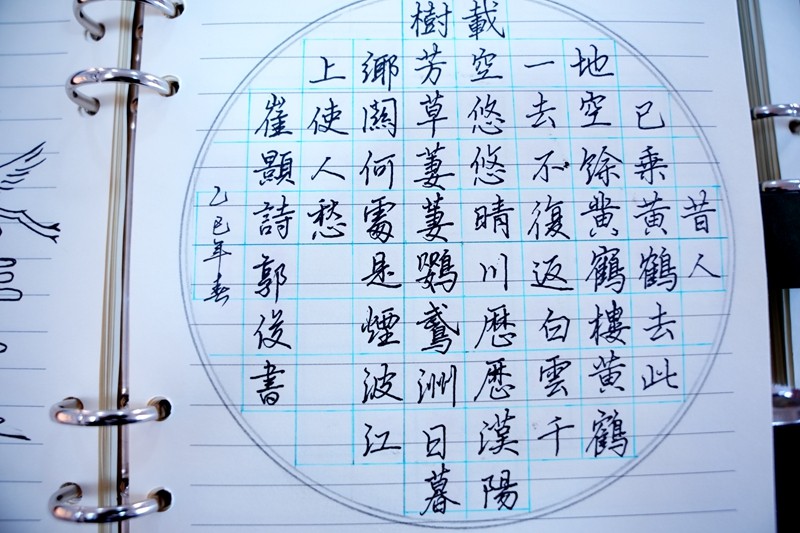 昔人
已乘黃鶴去此
地空餘黃鶴樓黃鶴
一去不復返白雲千
載空悠悠晴川歷歷漢陽
樹芳草萋萋鸚鵡洲日暮
鄉關何處是煙波江
上使人愁
崔顥詩郭俊書
乙巳年春